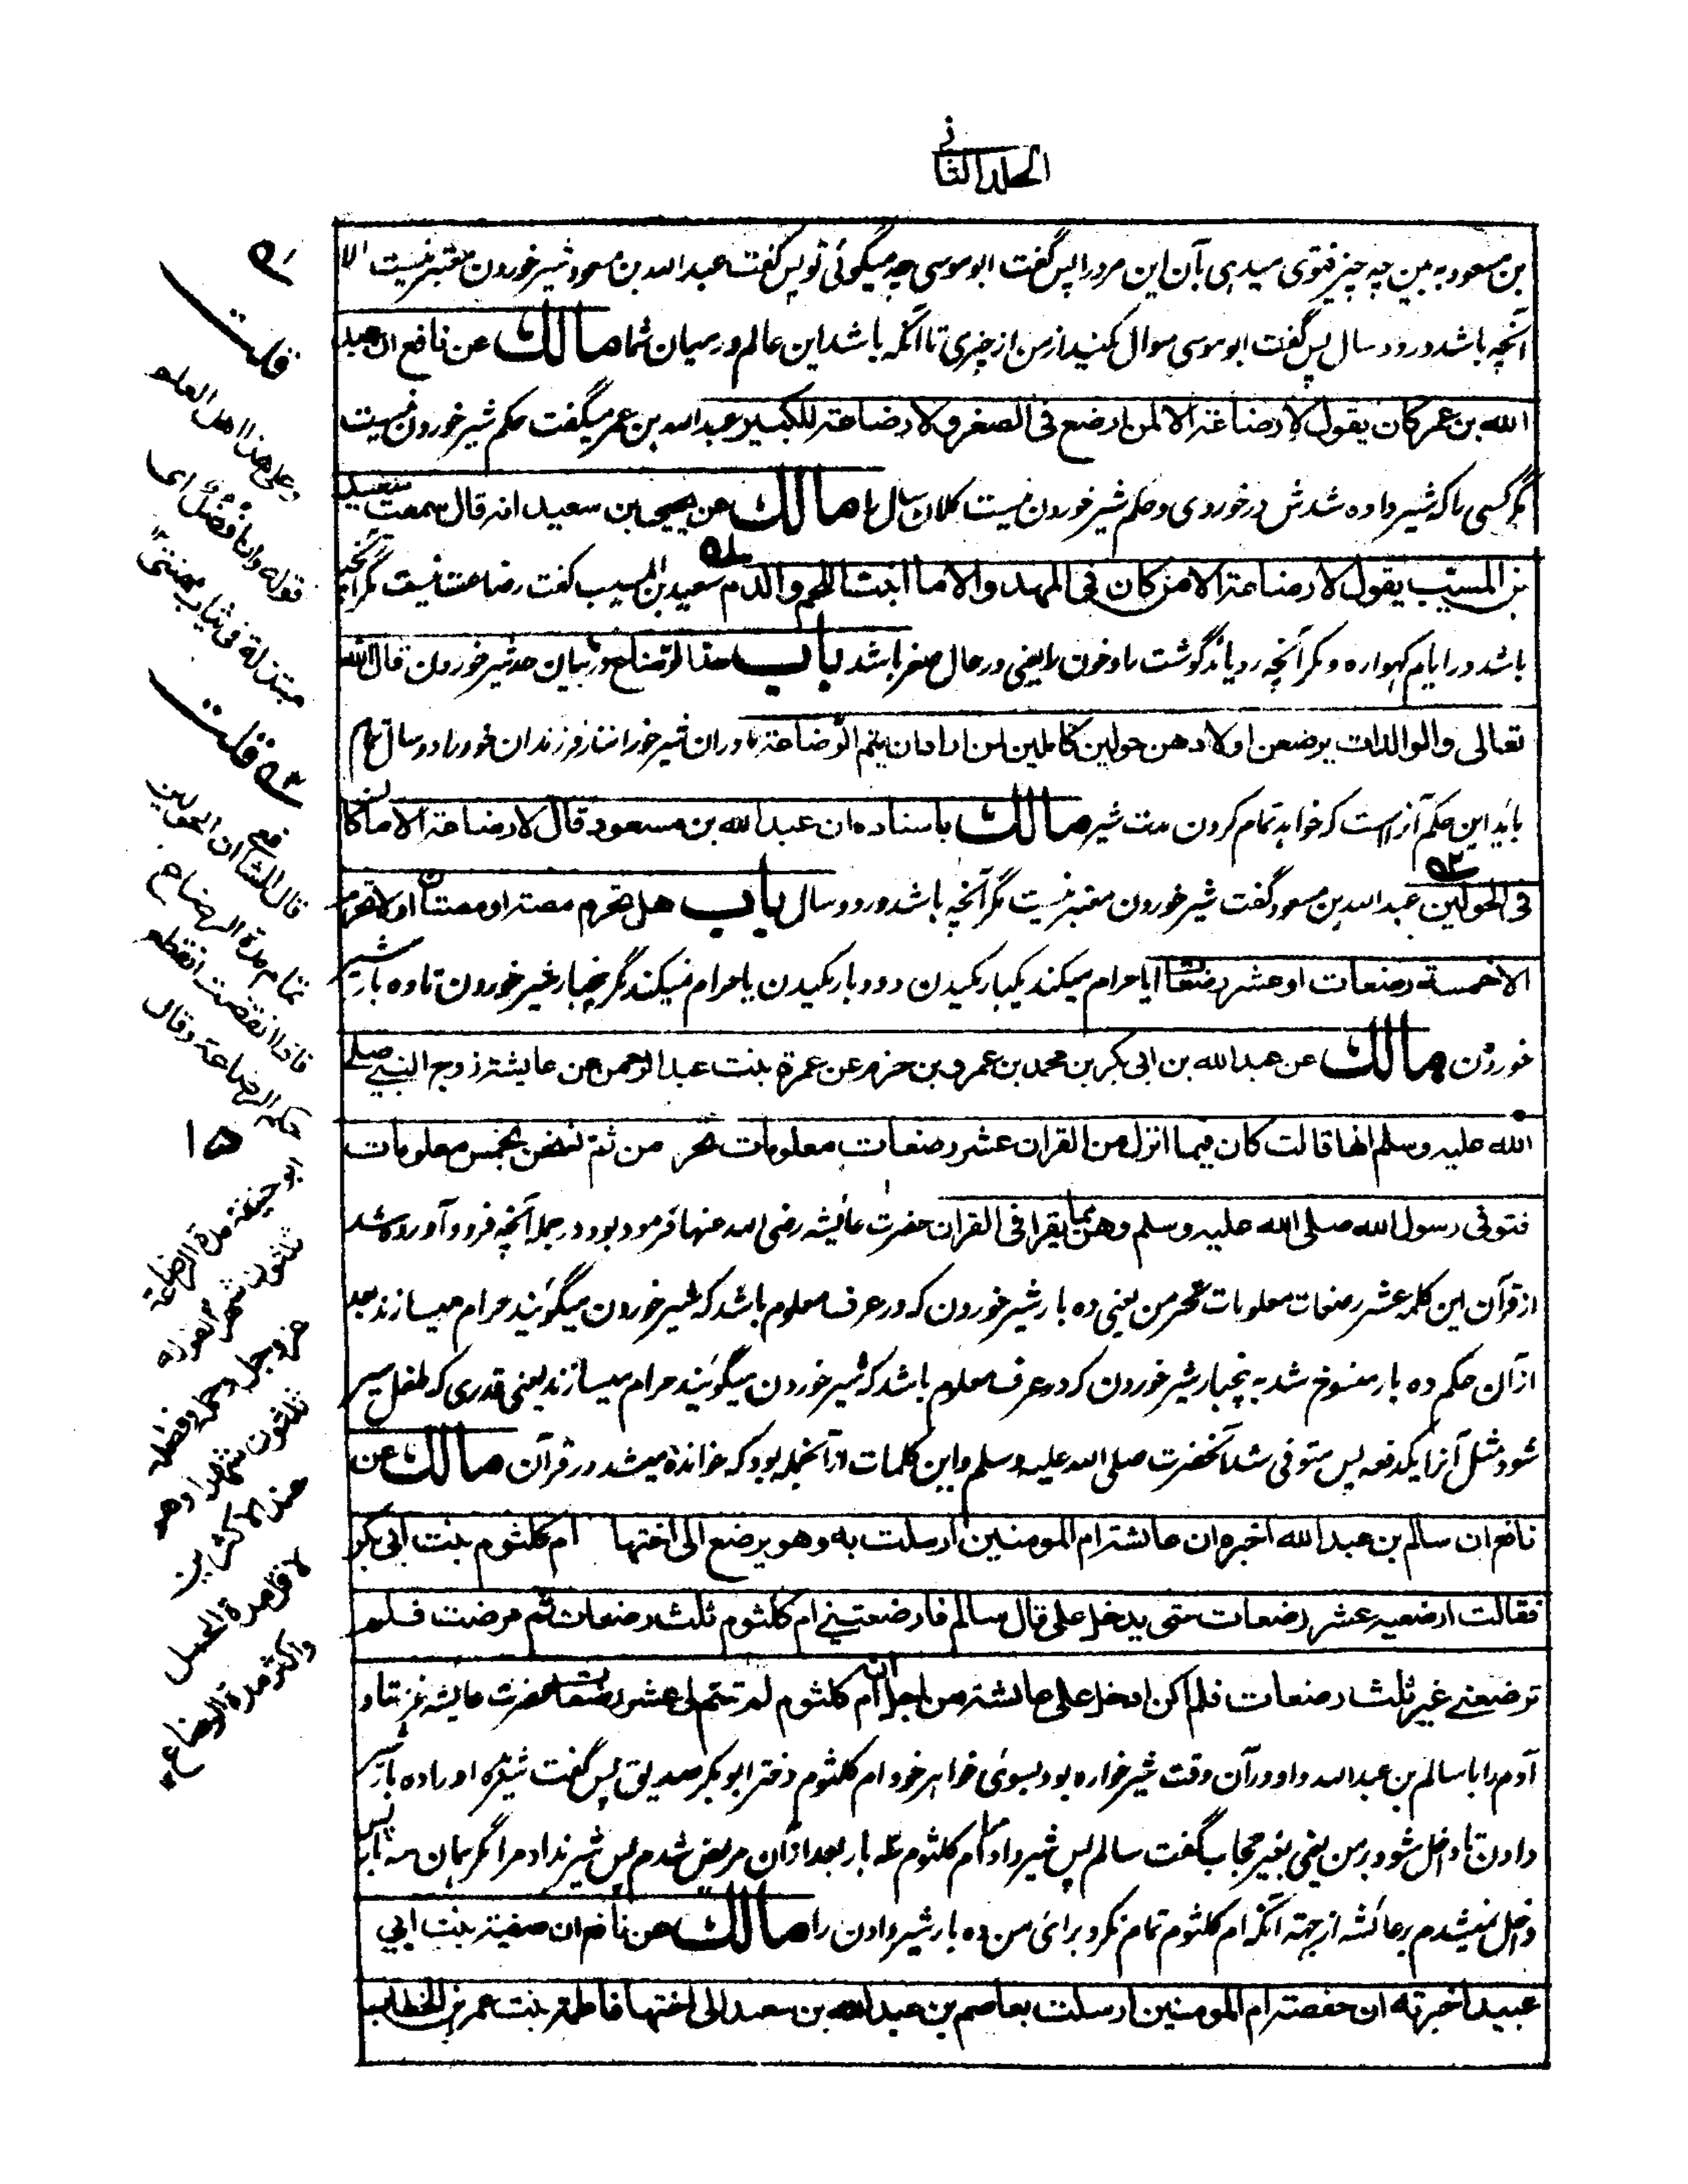 الجلد الثانی
بن مسعود به بین چه چیز فتوی میدہی بآن این مرد را پس گفت ابو موسی چه میگوئی تو پس گفت عبد الله بن مسعود شیر خوردن معتبر نیست الا
آنچه باشد در دو سال پس گفت ابو موسی سوال مکنید از من از چیزی تا آنکه باشد این عالم در میان شما مالك عن نافع ان عبد
الله بن عمر كان يقول لا رضاعة الا لمن ارضع فى الصغر ولا رضاعة للكبير عبد الله بن عمر میگفت حکم شیر خوردن نیست
مگر کسی را که شیر داده شدش در خوردی و حکم شیر خوردن نیست کلان سال را مالك عن يحيى بن سعيد انه قال سمعت سعيد
بن المسيّب يقول لا رضاعة الا من كان فى المهد والا ما انبت اللحم والدم سعید بن المسیب گفت رضاعت نیست مگر آنچه
باشد در ایام گهواره و مگر آنچه رویاند گوشت را و خون را یعنی در حال صغر باشد باب مدة الرّضاع در بیان مدة شیر خوردن قال الله
تعالى والوالدات يرضعن اولادهن حولين كاملين لمن اراد ان يتم الرّضاعة مادران شیر خورانند فرزندان خود را دو سال تمام
باید این حکم آنراست که خواهد تمام کردن مدت شیر مالك باسناده ان عبد الله بن مسعود قال لا رضاعة الا ما كان
فى الحولين عبد الله بن مسعود گفت شیر خوردن معتبر نیست مگر آنچه باشد در دو سال باب هل تحرم مصة او مصتان او لا تحرم
الا خمسة رضعات او عشر رضعات آیا حرام میکند یکبار مکیدن و دو بار مکیدن یا حرام نمیکند مگر پنجبار شیر خوردن تا ده بار شیر
خوردن مالك عن عبد الله بن ابى بكر بن محمد بن عمرو بن حزم عن عمرة بنت عبد الرحمن عن عايشة زوج النبي صلى
الله عليه وسلم انها قالت كان فيما انزل من القران عشر رضعات معلومات تحرمن ثم نسخن بخمس معلومات
فتوفى رسول الله صلى الله عليه وسلم وهن مما يقرا فى القران حضرت عایشه رضی الله عنها فرمود بود در جمله آنچه فرود آورده شد
از قرآن این کلمه عشر رضعات معلومات تحرمن یعنی ده بار شیر خوردن که در عرف معلوم باشد که شیر خوردن میگویند حرام میسازند بعد
از آن حکم ده بار منسوخ شد به پنجبار شیر خوردن که در عرف معلوم باشد که شیر خوردن میگویند حرام میسازند یعنی قدری که طفل سیر
شود مثل آنرا یکدفعه پس متوفی شد آنحضرت صلی الله علیه وسلم و این کلمات از آنجمله بود که خوانده میشد در قرآن مالك عن
نافع ان سالم بن عبد الله اخبره ان عائشة ام المومنين ارسلت به وهو يرضع الى اختها ام كلثوم بنت ابى بكر
فقالت ارضعيه عشر رضعات حتى يدخل على قال سالم فارضعتني ام كلثوم ثلث رضعات ثم مرضت فلم
ترضعني غير ثلث رضعات فلم اكن ادخل على عائشة من اجل ان ام كلثوم لم تتم لى عشر رضعات حضرت عایشه فرستاد
آدم را با سالم بن عبد الله و او در آن وقت شیر خواره بود بسوی خواهر خود ام کلثوم دختر ابو بکر صدیق پس گفت شیر ده او را ده بار شیر
دادن تا داخل شود بر من یعنی بغیر حجاب گفت سالم پس شیر داد مرا ام کلثوم سه بار بعد از آن مریض شدم پس شیر نداد مرا مگر همان سه بار پس
داخل نمیشدم بر عائشه از جهة آنکه ام کلثوم تمام نکرد برای من ده بار شیر دادن را مالك عن نافع ان صفية بنت ابي
عبيد اخبرته ان حفصة ام المومنين ارسلت بعاصم بن عبد الله بن سعد الى اختها فاطمة بنت عمر بن الخطاب
قلت
وعلى هذا اهل العلم
قوله وانا فضل اى
مبتذلة فى ثياب مهنتى
قلت
قال الشافعى ان الحولين
تمام مدة الرضاع
فاذا انقضت انقطع
حكم الرضاعة وقال
ابو حنيفة مدة الرضاعة
ثلثون شهرا لقوله
عز وجل وحمله وفصاله
ثلثون شهرا وهو
عند الاكثرين
لاقل مدة الحمل
واكثر مدة الرضاع